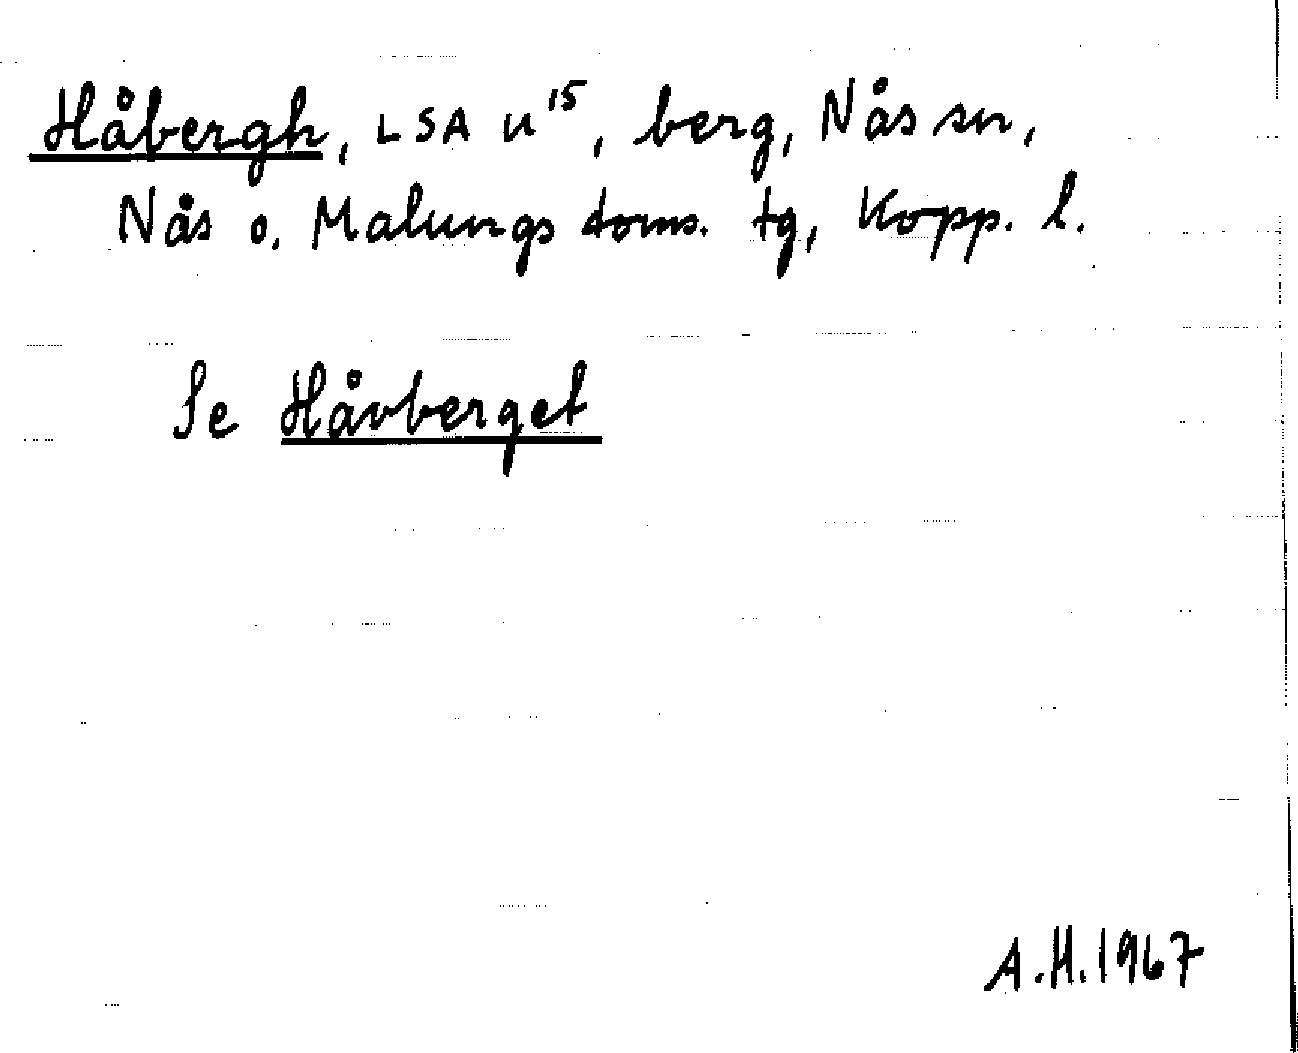 Håbergh, LSA u¹⁵, berg, Nås sn,
Nås o. Malungs doms. tg, Kopp. l.
Se Håvberget
A.H. 1967